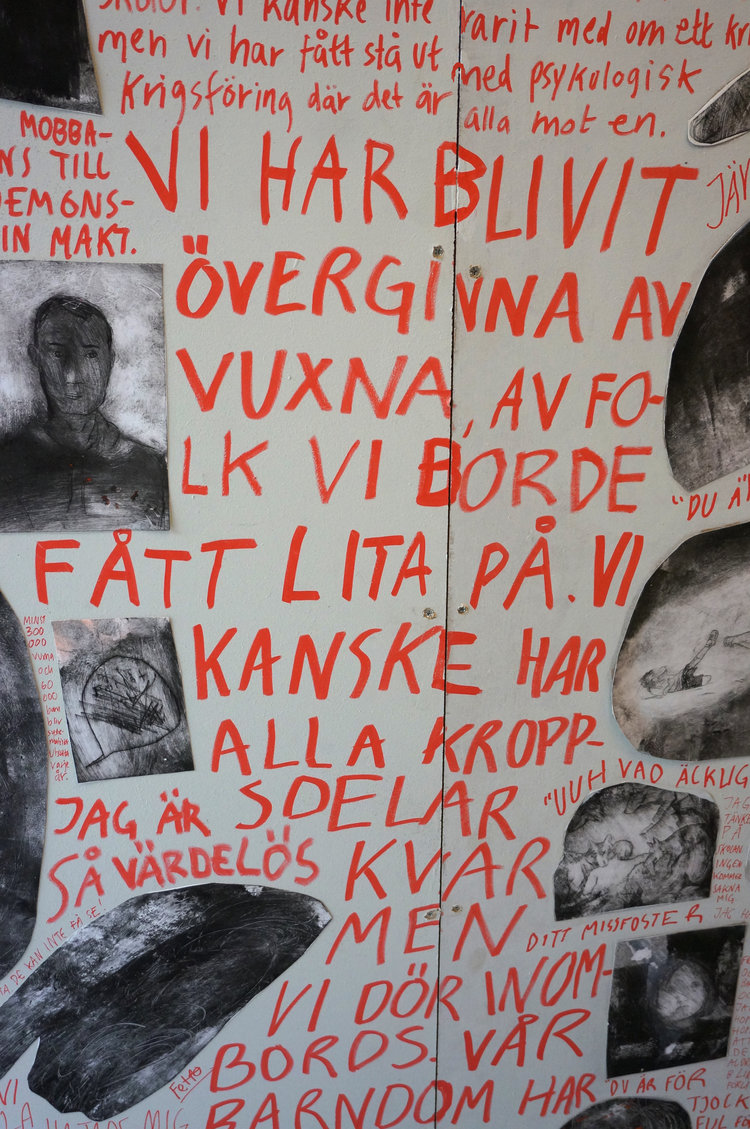 Vi kanske inte varit med om ett kri
men vi har fått stå ut med psykologisk
krigsföring där det är alla mot en.
MOBBA-
NS TILL
EMONS-
IN MAKT.
VI HAR BLIVIT
ÖVERGIVNA AV
VUXNA, AV FO-
LK VI BORDE
FÅTT LITA PÅ. VI
KANSKE HAR
ALLA KROPP-
SDELAR
KVAR
MEN
VI DÖR INOM-
BORDS. VÅR
BARNDOM HAR
JÄV
"DU Ä
MINST
300
000
VUXNA
OCH
60
000
barn
bliv
syste-
matiskt
varje
år.
JAG ÄR
SÅ VÄRDELÖS
"UUH VAD ÄCKLIG
JAG
TÄNKER
PÅ
SKOLAN
INGEN
KOMMER
SAKNA
MIG
DITT MISSFOSTER
DE KAN INTE FÅ SE!
Fetto
VI
HATADE MIG
DU ÄR FÖR
TJOLK
FUL FÖ